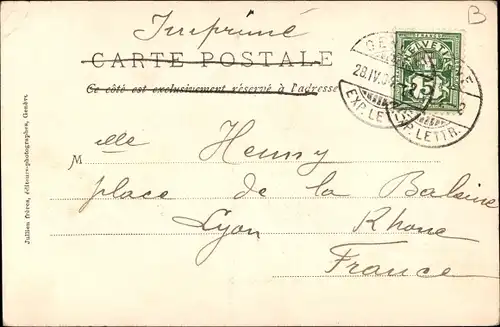 Imprimé
B
CARTE POSTALE
Ce côté est exclusivement réservé à l'adresse
HELVETIA
FRANCO
5
EXP. LETTR.
EXP. LETTR.
Melle Henny
place de la Baleine
Lyon Rhone
France
Jullien frères, éditeurs-photographes, Genève.